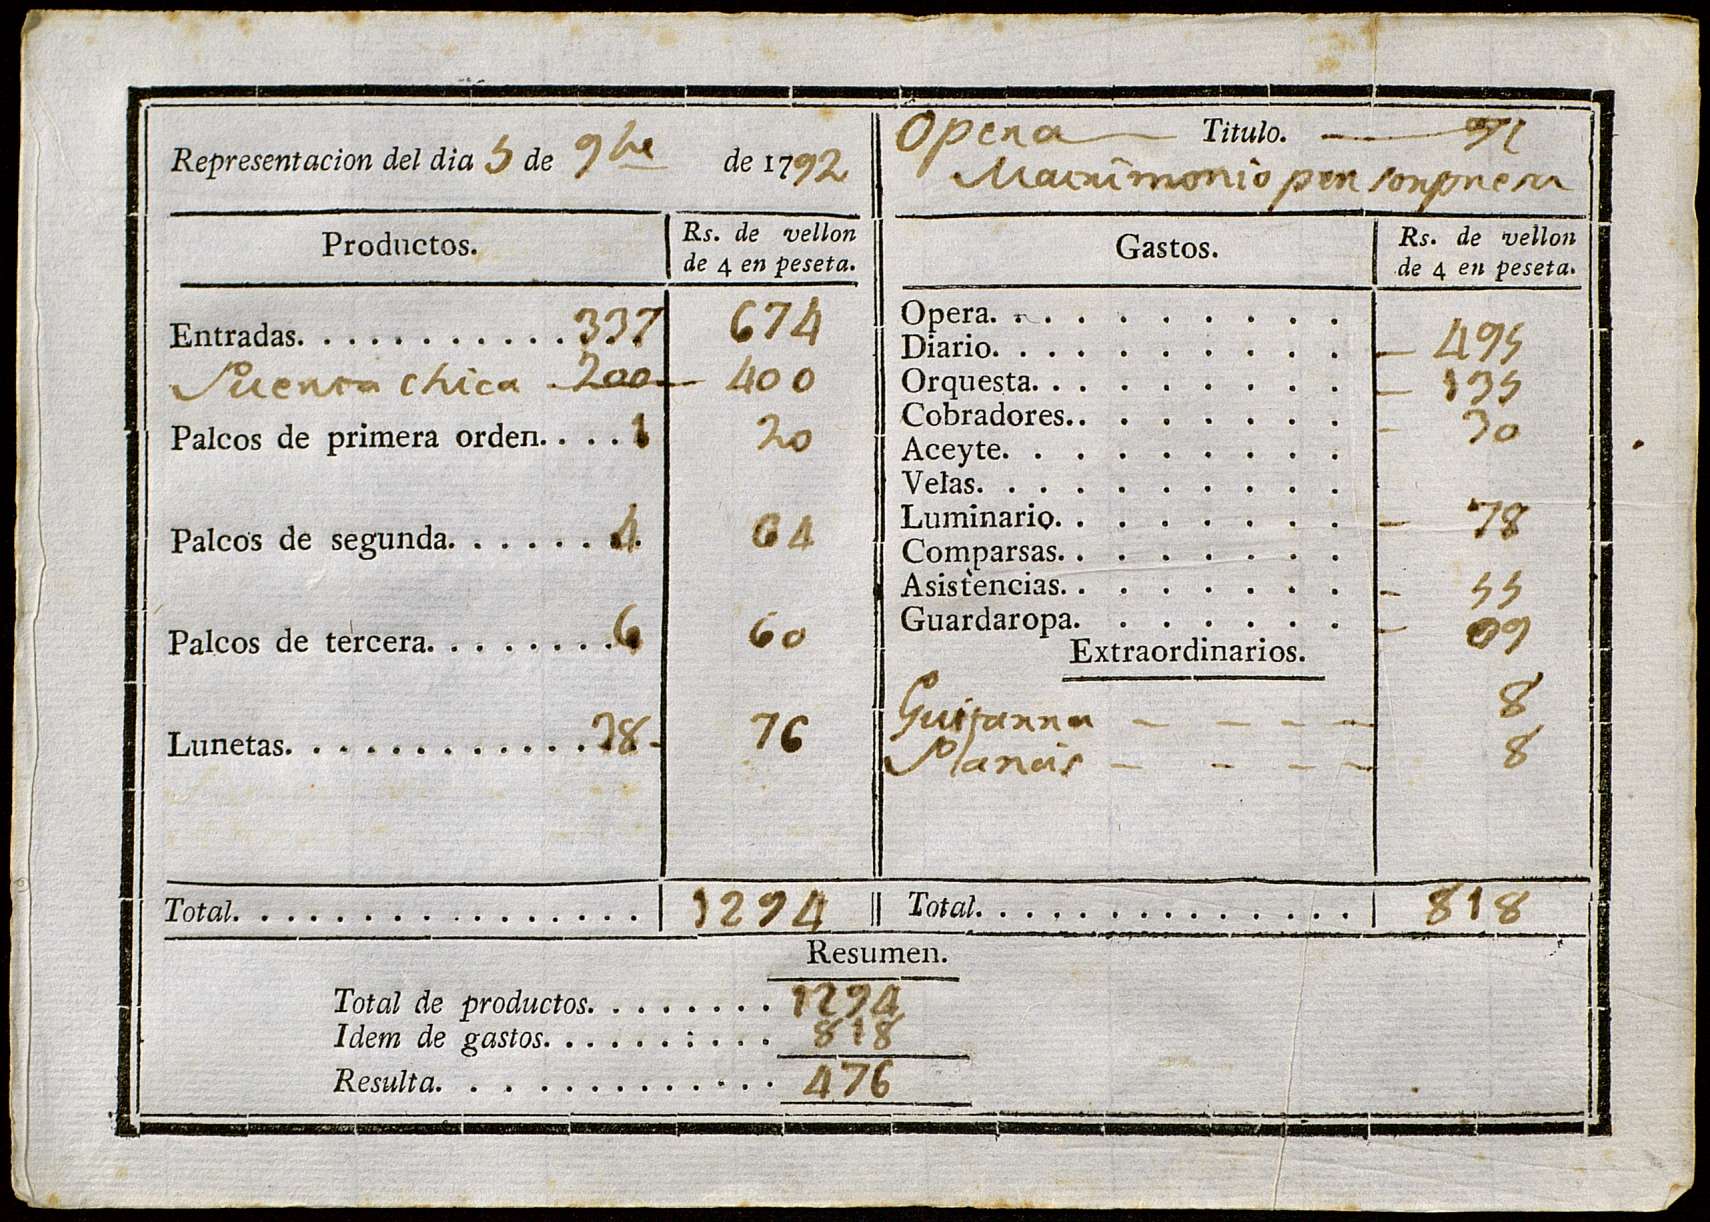 Representacion del dia 5 de 9bre de 1792
Productos. Rs. de vellon
de 4 en peseta.
Entradas. . . . . . . . . . . . 337 674
Puerta chica 200 400
Palcos de primera orden. . . . 1 20
Palcos de segunda. . . . . . . . 4 64
Palcos de tercera. . . . . . . . 6 60
Lunetas. . . . . . . . . . . . . 38 76
Total. . . . . . . . . . . . . . . . 1294
Opera Titulo. Il
Matrimonio per sorpresa
Gastos. Rs. de vellon
de 4 en peseta.
Opera. . . . . . . . . .
Diario. . . . . . . . . . 495
Orquesta. . . . . . . . . 135
Cobradores. . . . . . . . 30
Aceyte. . . . . . . . .
Velas. . . . . . . . . .
Luminario. . . . . . . . 78
Comparsas. . . . . . . .
Asistencias. . . . . . . . 55
Guardaropa. . . . . . . 09
Extraordinarios.
Guitarra 8
Planas 8
Total. . . . . . . . . . . . . . . 818
Resumen.
Total de productos. . . . . . . . 1294
Idem de gastos. . . . . . : . . . 818
Resulta. . . . . . . . . . . . 476